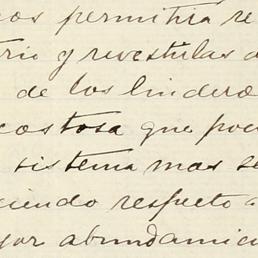 nos permitirá re
trio y revestirlas d
de los lindero
costosa que poc
sistema mas se
ciendo respecto a
yor abundamien